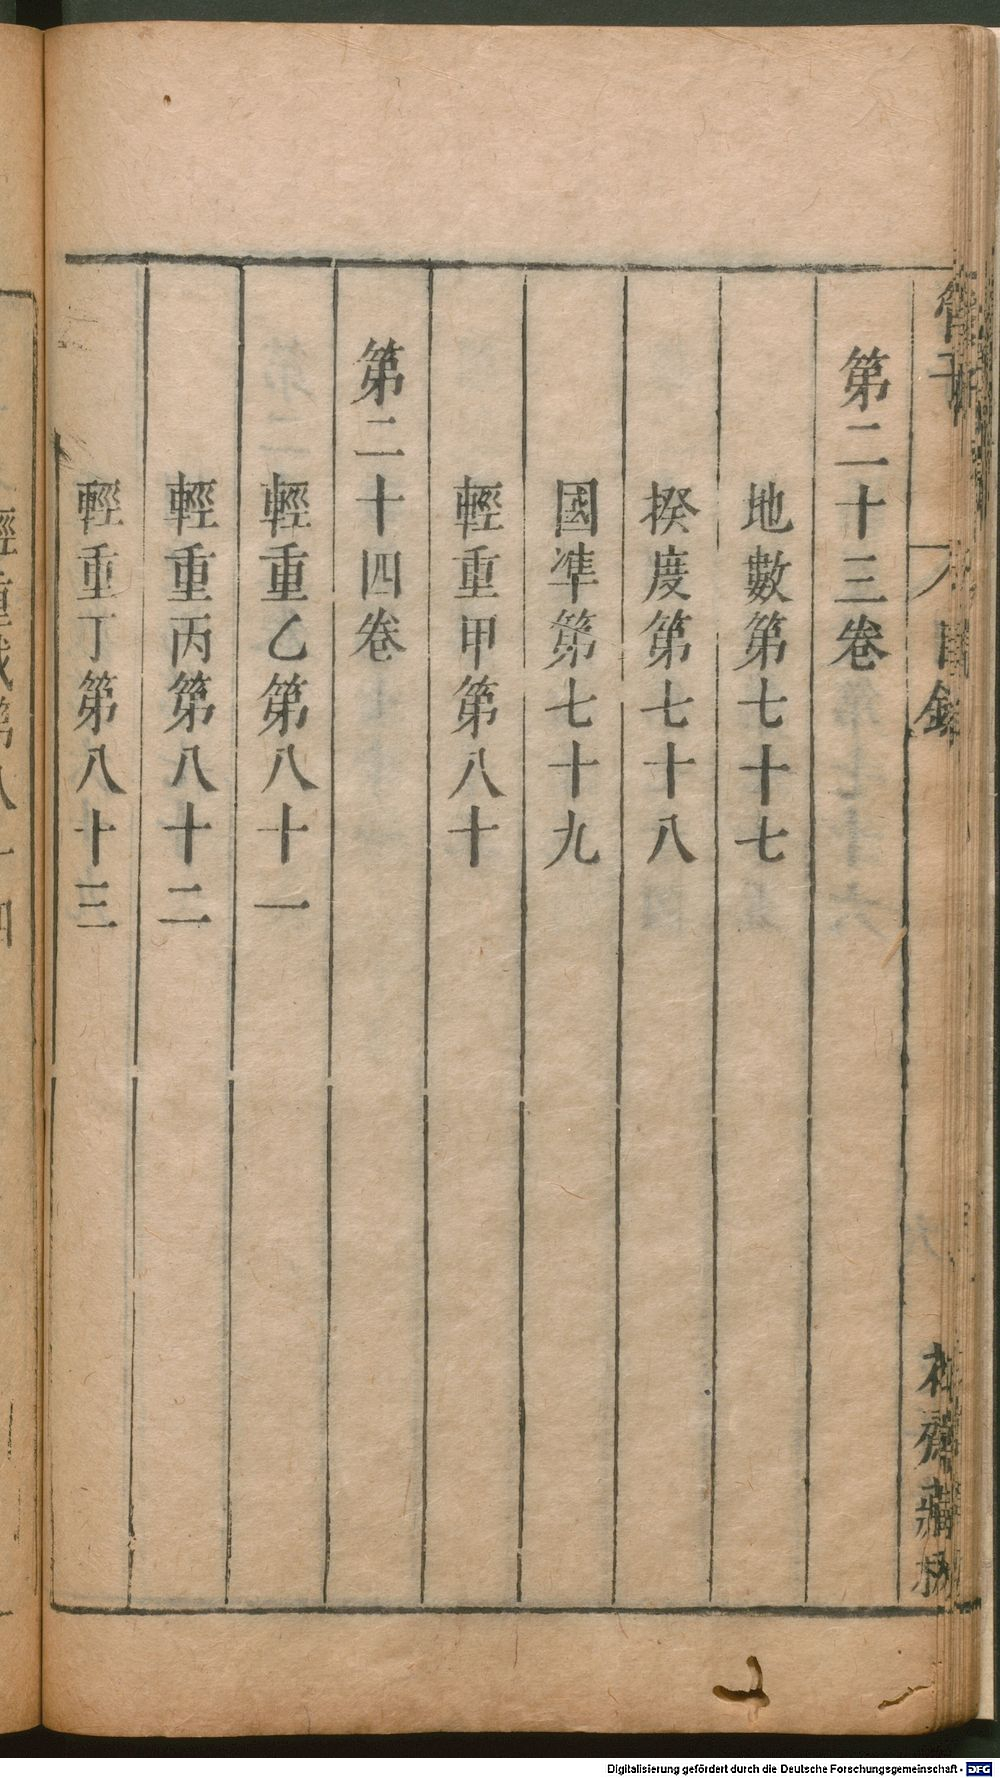 管子
目錄
第二十三卷
地數第七十七
揆度第七十八
國準第七十九
輕重甲第八十
第二十四卷
輕重乙第八十一
輕重丙第八十二
輕重丁第八十三
Digitalisierung gefördert durch die Deutsche Forschungsgemeinschaft - DFG